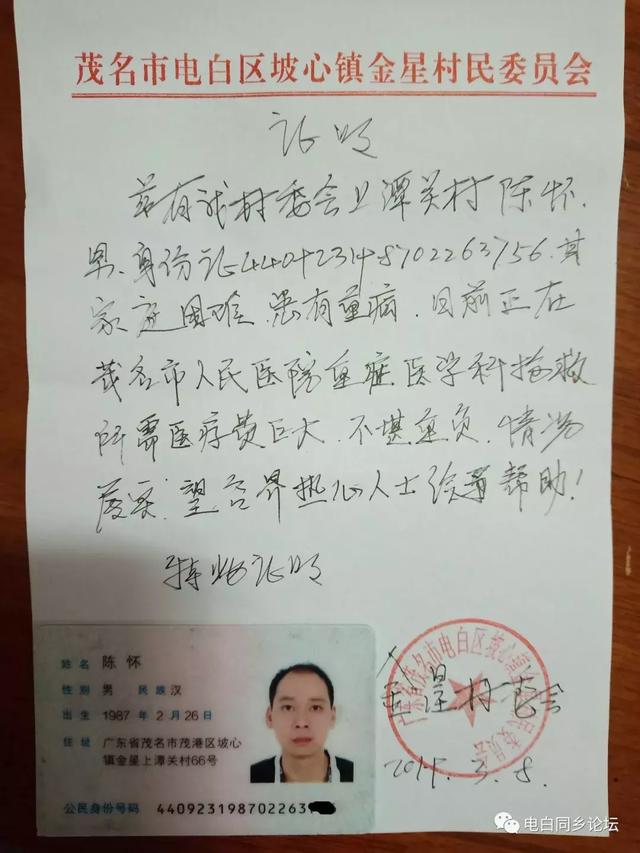 茂名市电白区坡心镇金星村民委员会
证明
兹有我村委会上潭关村陈怀.
男、身份证440923198702263756.其
家庭困难.患有重病.目前正在
茂名市人民医院重症医学科抢救
所需医疗费巨大.不堪重负.情况
属实.望各界热心人士给予帮助!
特此证明
姓名 陈怀
性别 男 民族 汉
出生 1987 年 2 月 26 日
住址 广东省茂名市茂港区坡心
镇金星上潭关村66号
公民身份号码 440923198702263
广东省茂名市电白区坡心镇金星村民委员会
金星村委会
3.8.
电白同乡论坛